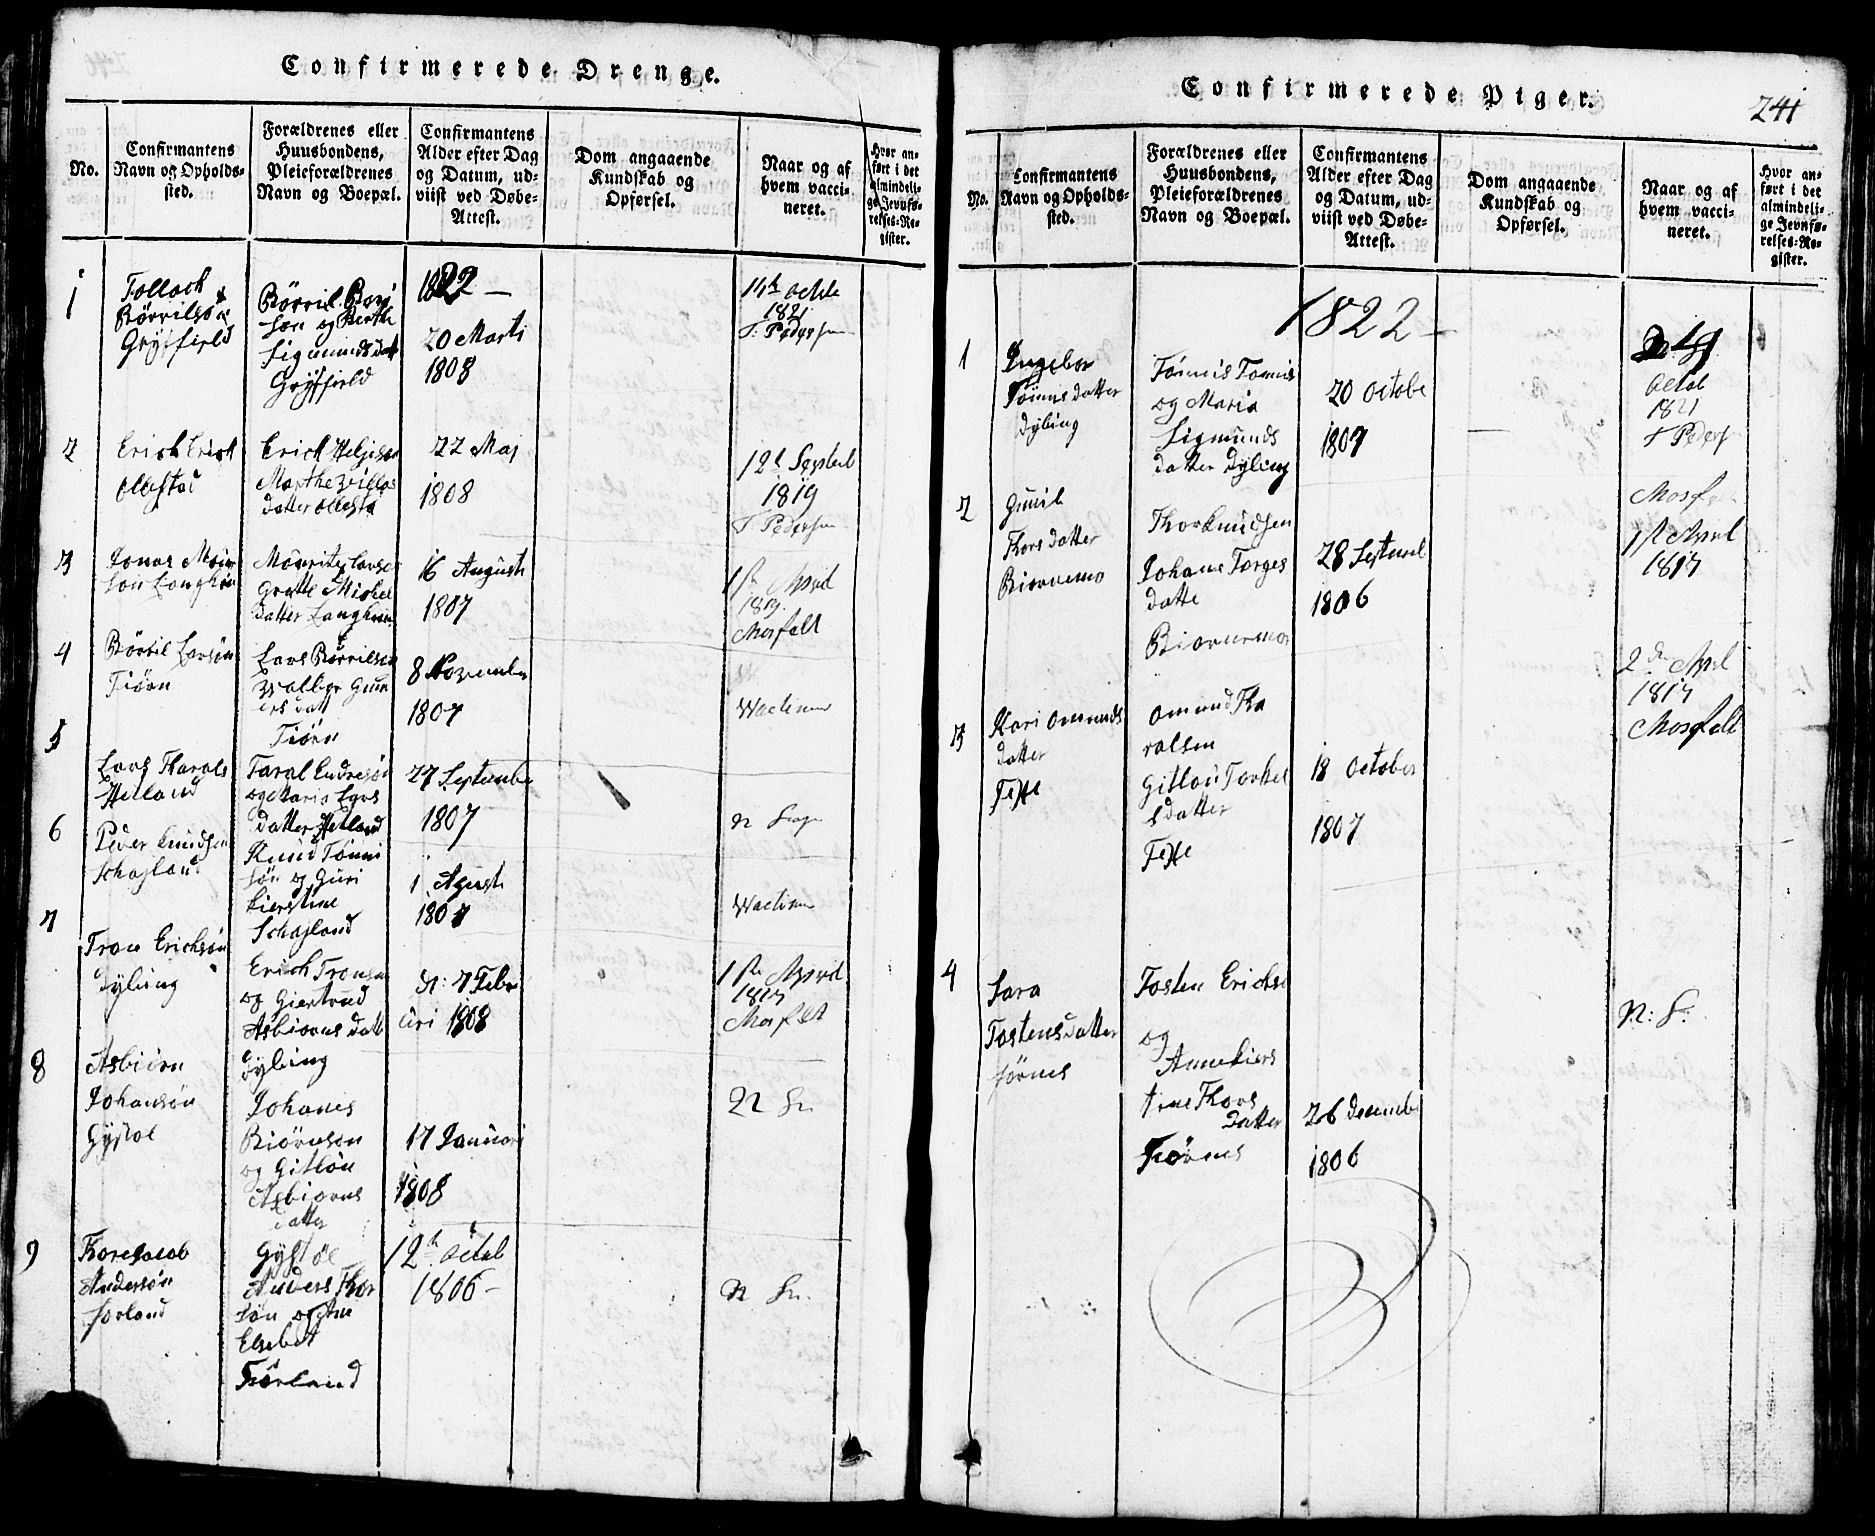 Confirmerede Drenge.
No.
Confirmantens
Navn og Opholds-
sted.
Forældrenes eller
Huusbondens,
Pleieforældrenes
Navn og Boepæl.
Confirmantens
Alder efter Dag
og Datum, ud-
viist ved Døbe-
Attest.
Dom angaaende
Kundskab og
Opførsel.
Naar og af
hvem vacci-
neret.
Hvor an-
ført i det
almindeli-
ge Jevnfø-
relses-Re-
gister.
1822
1
Tollack
Børrilsøn
Gryffield
Børril
søn og Berthe
Sigmundsdatt
Gryffield
20 Marti
1808
14de Octob
1821
T. Pedersen
2
Erich Erich
Ollestad
Erich Helgisen
Marthe Villos
datter Ollesta
22 Maj
1808
12t Septeb
1819
T Pedersen
3
Jonas
søn Langhun
Mouritz Larsen
Grette Michel
datter Langhun
16 Augusti
1807
1ste Aprid
1817
Mosfelt
4
Børril Larsøn
Tiørn
Lars Børrilsen
Walbor Gunn
ers datt
Tiørn
8 November
1807
Wacineret
5
Lars Tharals
Hetland
Taral Endresøn
og Maria Lars
datter Hetland
27 September
1807
n
6
Peder Knudsen
Schasland
Knud Tønni
søn og Guri
Kierstine
Schasland
1 Agusti
1807
Wacineret
7
Tron Erichsøn
Dyling
Erich Tronsen
og Giertrud
Asbiørns datt
Dyling
d: 7 Febr
uri 1808
1ste Aprid
1817
Mosfelt
8
Asbiørn
Johansøn
Gystøl
Johanes
Biørnsen
og Gitløu
Asbiørns
datter
Gystøl
17 Januari
1808
n S.
9
Thore Jacob
Andersøn
Sørland
Anders Thor
søn og Ane
Elsebet
Sørland
12te Octob
1806 –
n S.
Confirmerede Piger.
241
No.
Confirmantens
Navn og Opholds-
sted.
Forældrenes eller
Huusbondens,
Pleieforældrenes
Navn og Boepæl.
Confirmantens
Alder efter Dag
og Datum, ud-
viist ved Døbe-
Attest.
Dom angaaende
Kundskab og
Opførsel.
Naar og af
hvem vacci-
neret.
Hvor an-
ført i det
almindeli-
ge Jevnfø-
relses-Re-
gister.
1822 –
1
Ingebor
Tønnis datter
Dyling
Tønnis Tønnis
og Maria
Sigmunds
datter Dyling
20 Octobe
1807
Octob
1821
T Peders
2
Gunil
Thors datter
Biørnemo
Thor Knudsen
Johane Torges
datte
Biørnemo
28 Septemb
1806
Mosfelt
1st April
1817
3
Kari Omunds
datter
Fesse
Omund Tha
ralsen
Gitlou Torkel
sdatter
Fesse
18 October
1807
2den April
1817
Mosfelt
4
Sara
Tostensdatter
Sørnes
Tosten Erichse
og
Anne Kiers
tine Thors
datter
Sørnes
26 Decembe
1806
N: S: